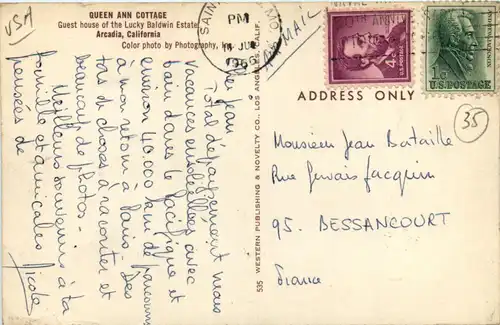 USA
QUEEN ANN COTTAGE
Guest house of the Lucky Baldwin Estate,
Arcadia, California
Color photo by Photography,
PM
JUL
AIR MAIL
4¢
U.S. POSTAGE
1¢
U.S. POSTAGE
ADDRESS ONLY
35
Cher Jean
Total dépaysement mais
vacances ensoleillées avec
bain dans le Pacifique et
environ 40.000 km de parcourus
à mon retour à Paris. Des
tas de choses à raconter et
beaucoup de photos.
Meilleurs souvenirs à ta
famille et amicales
pensées de
Nicole
535 WESTERN PUBLISHING & NOVELTY CO., LOS ANGELES, CALIF.
Monsieur Jean Bataille
Rue Gervais Jacquin
95. BESSANCOURT
France